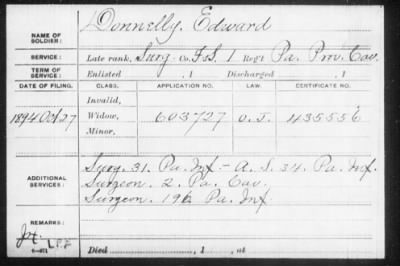 NAME OF SOLDIER: Donnelly, Edward
SERVICE: Late rank, Surg. Co. F&S, 1 Reg't Pa. Prov. Cav.
TERM OF SERVICE: Enlisted , 1 Discharged , 1
DATE OF FILING. CLASS. APPLICATION NO. LAW. CERTIFICATE NO.
Invalid,
1894 Oct 27 Widow, 603727 O.J. 435556
Minor,
Surg. 31. Pa. Inf. - A. S. 34. Pa. Inf.
ADDITIONAL SERVICES: Surgeon. 2. Pa. Cav.
Surgeon. 196 Pa. Inf.
REMARKS:
Died , 1 , at